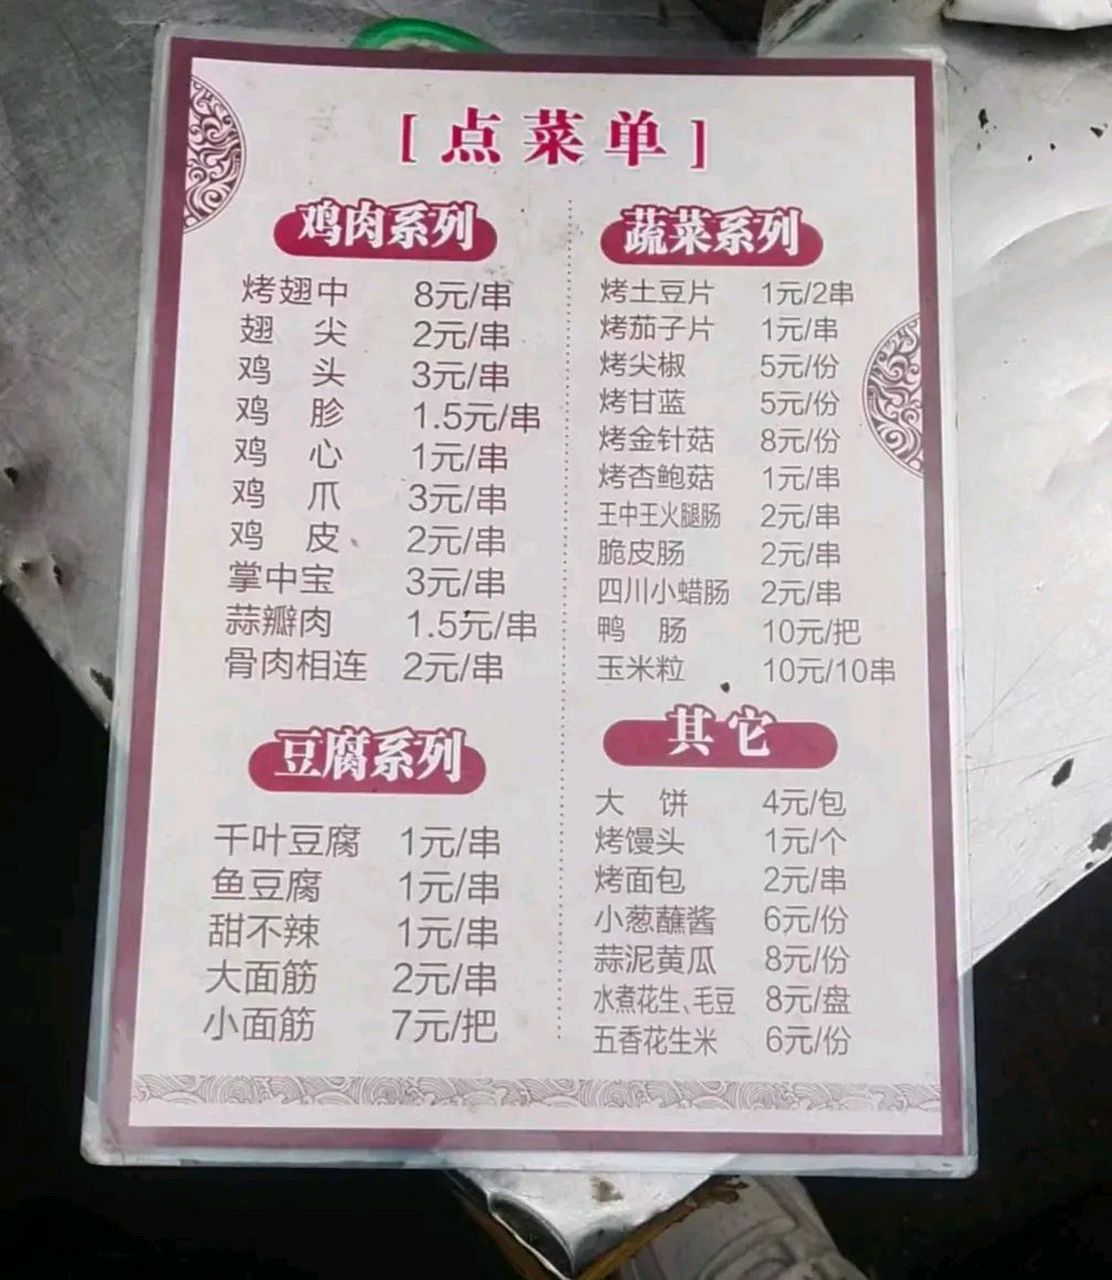 [点菜单]
鸡肉系列
烤翅中 8元/串
翅尖 2元/串
鸡头 3元/串
鸡胗 1.5元/串
鸡心 1元/串
鸡爪 3元/串
鸡皮 2元/串
掌中宝 3元/串
蒜瓣肉 1.5元/串
骨肉相连 2元/串
豆腐系列
千叶豆腐 1元/串
鱼豆腐 1元/串
甜不辣 1元/串
大面筋 2元/串
小面筋 7元/把
蔬菜系列
烤土豆片 1元/2串
烤茄子片 1元/串
烤尖椒 5元/份
烤甘蓝 5元/份
烤金针菇 8元/份
烤杏鲍菇 1元/串
王中王火腿肠 2元/串
脆皮肠 2元/串
四川小蜡肠 2元/串
鸭肠 10元/把
玉米粒 10元/10串
其它
大饼 4元/包
烤馒头 1元/个
烤面包 2元/串
小葱蘸酱 6元/份
蒜泥黄瓜 8元/份
水煮花生、毛豆 8元/盘
五香花生米 6元/份